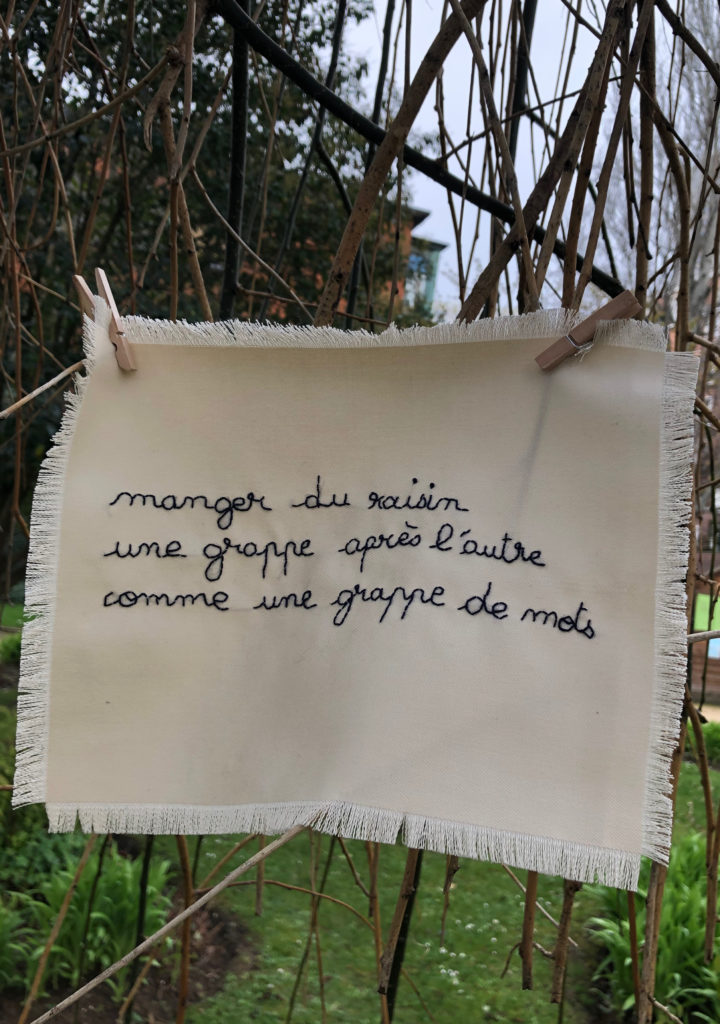 manger du raisin
une grappe après l'autre
comme une grappe de mots